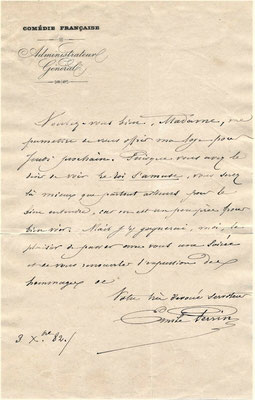 COMÉDIE FRANÇAISE
Administrateur
Général
Voulez-vous bien, Madame, me
permettre de vous offrir ma loge pour
Jeudi prochain. Puisque vous avez le
désir de voir Le Roi s'amuse, vous serez
là mieux que partout ailleurs, pour le
bien entendre, car on est un peu près pour
bien voir. Mais j'y gagnerai, moi, le
plaisir de passer avec vous une soirée
et de vous renouveler l'expression des
hommages de
Votre très dévoué serviteur
Emile Perrin
3 Xbre 82.